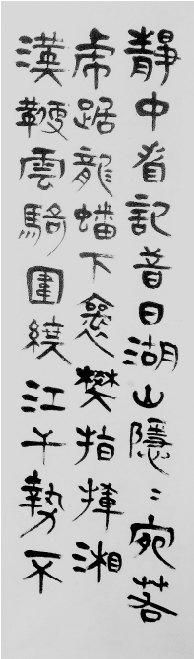 靜中看記昔日湖山隱〻宛若
虎踞龍蟠下襄樊指揮湘
漢鞭雲騎圍繞江干勢不